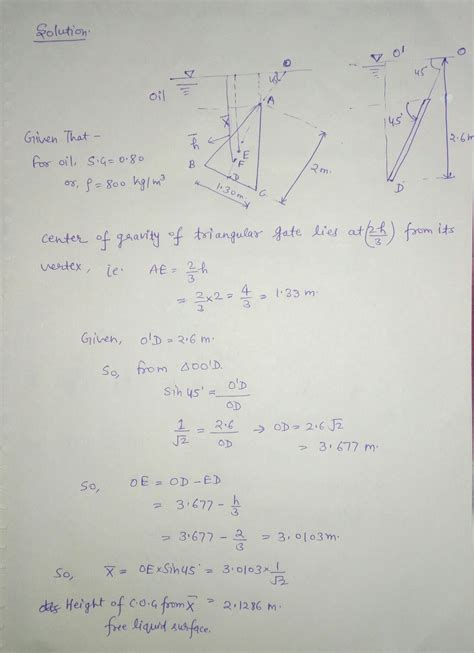 Solution.
O
O'
O
45
45
Oil
A
x̄
h̄
45°
2.6 m
Given That -
For oil, S.G = 0.80
or, ρ = 800 kg/m³
B
E
F
D
C
2m.
1.30m.
D
center of gravity of triangular gate lies at (2h/3) from its
vertex, ie. AE = 2/3 h
= 2/3 × 2 = 4/3 = 1.33 m.
Given, O'D = 2.6 m.
So, from ΔOO'D.
Sin 45° = O'D/OD
1/√2 = 2.6/OD → OD = 2.6 √2
= 3.677 m.
So, OE = OD - ED
= 3.677 - h/3
= 3.677 - 2/3 = 3.0103 m.
So, X̄ = OE × Sin 45° = 3.0103 × 1/√2
Height of C.O.G from X̄ = 2.1286 m.
free liquid surface.